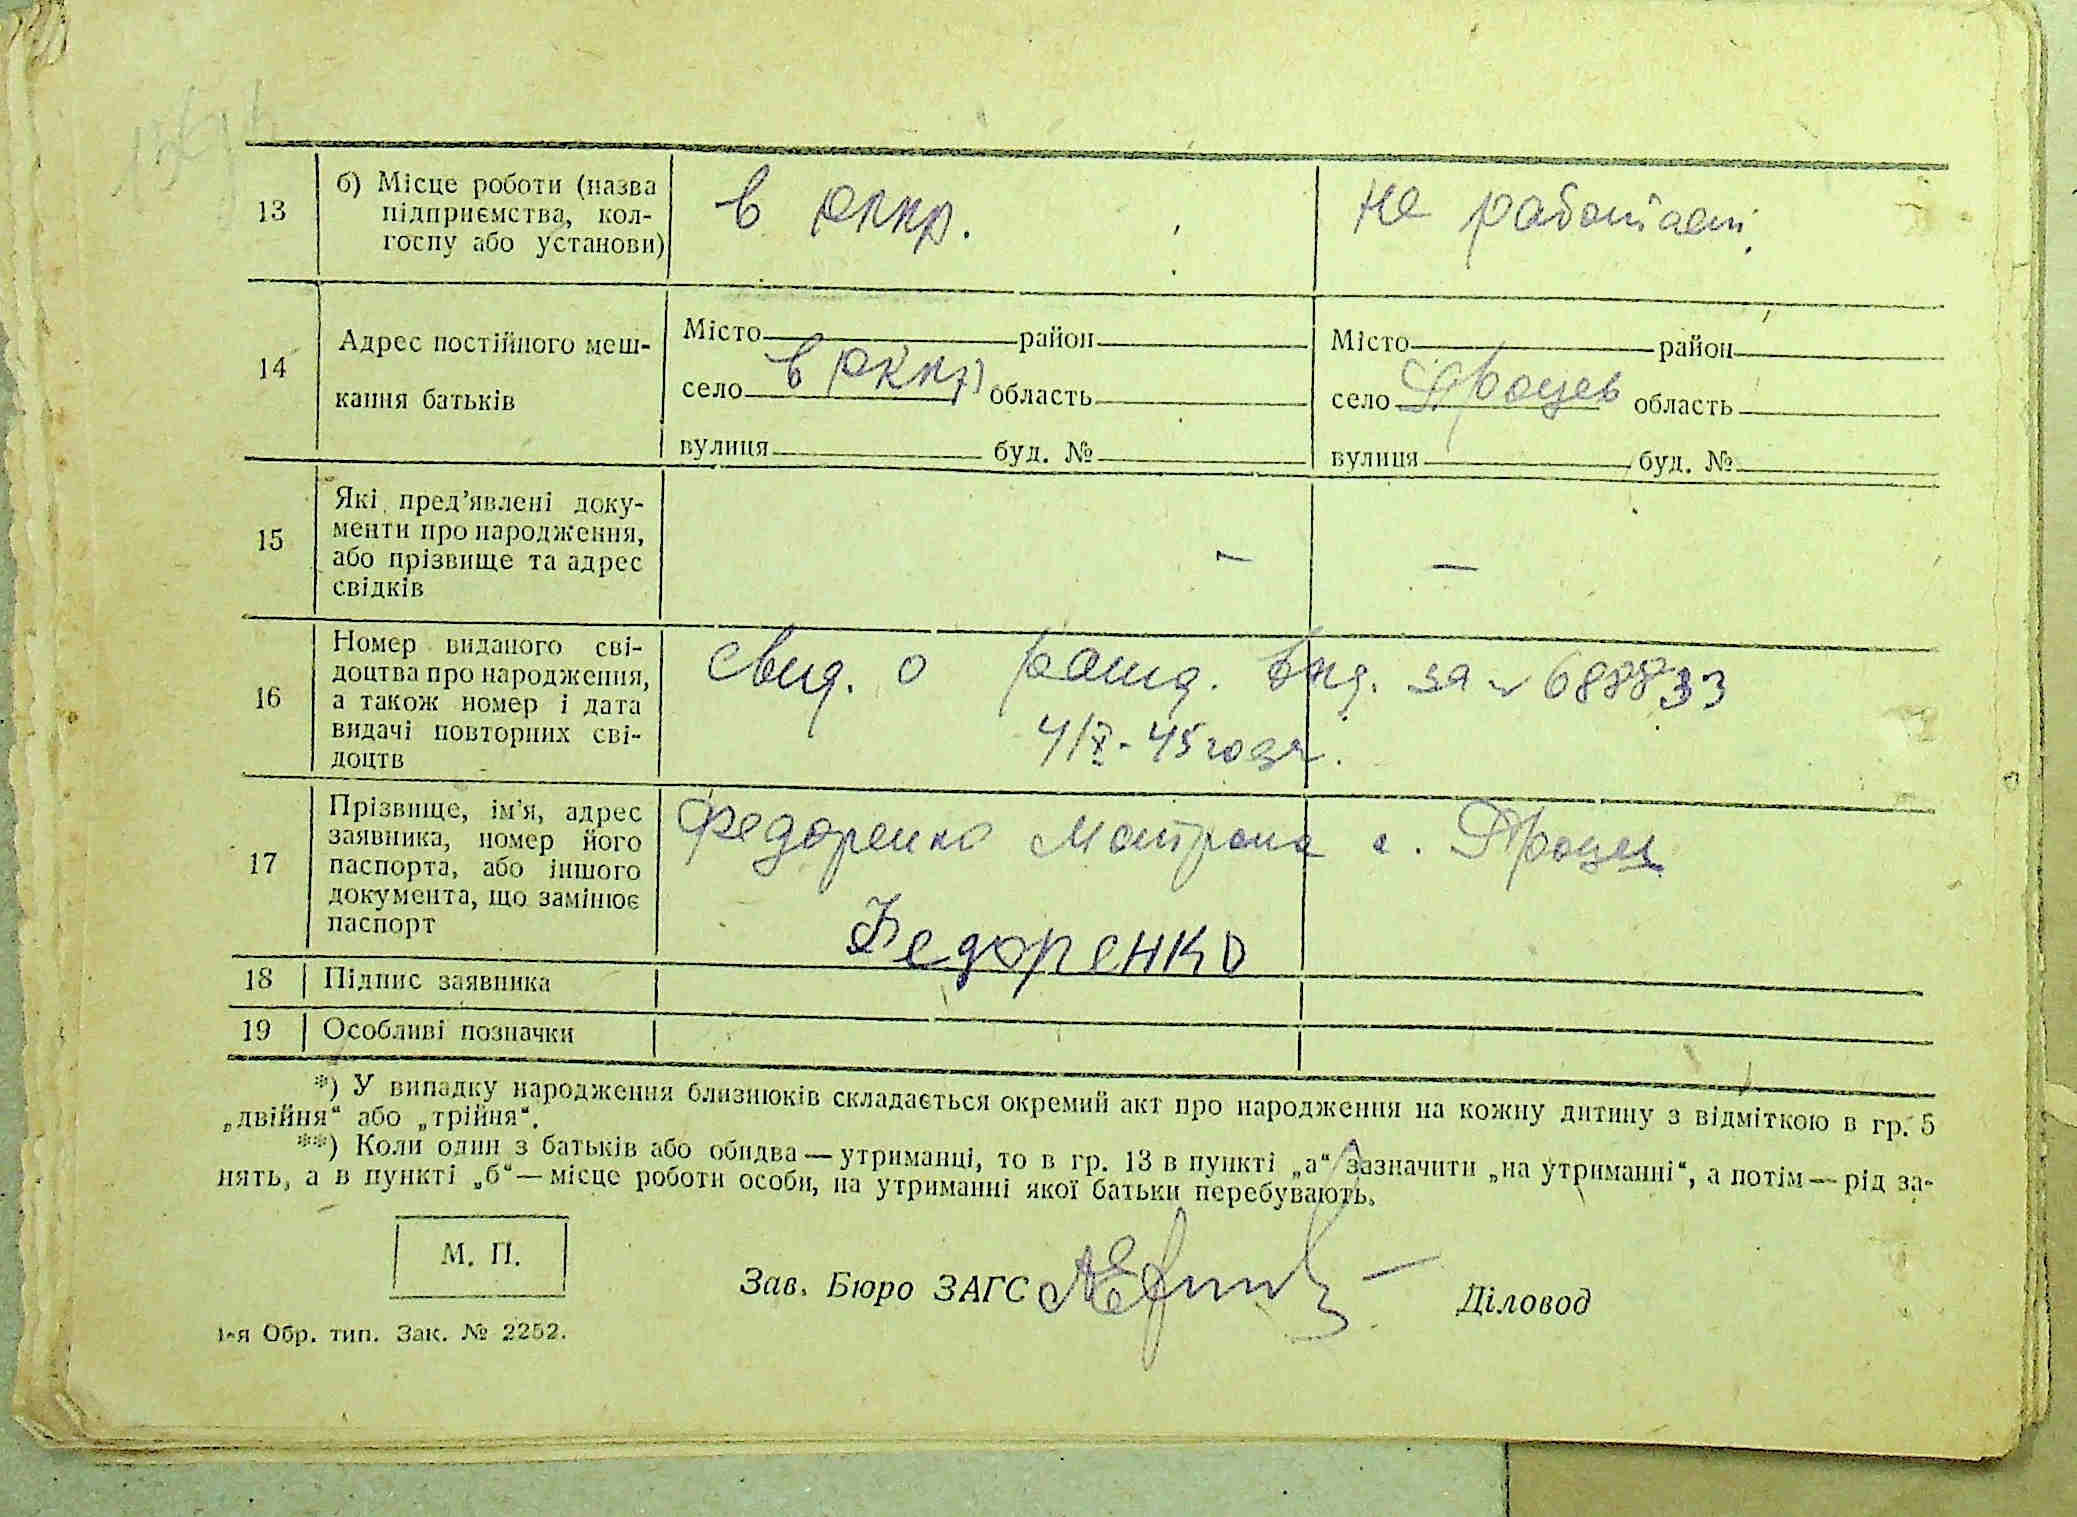 13
б) Місце роботи (назва
підприємства, кол-
госпу або установи)
в РККА.
не работает.
14
Адрес постійного меш-
кання батьків
Місто район
село в РККА область
вулиця буд. №
Місто район
село Процев область
вулиця буд. №
15
Які пред’явлені доку-
менти про народження,
або прізвище та адрес
свідків
— —
16
Номер виданого сві-
доцтва про народження,
а також номер і дата
видачі повторних сві-
доцтв
свид. о рожд. выд. за № 688833
4/X-45 года.
17
Прізвище, ім’я, адрес
заявника, номер його
паспорта, або іншого
документа, що замінює
паспорт
Федоренко Матрона с. Процев
Федоренко
18 Підпис заявника
19 Особливі позначки
*) У випадку народження близнюків складається окремий акт про народження на кожну дитину з відміткою в гр. 5
„двійня“ або „трійня“.
**) Коли один з батьків або обидва — утриманці, то в гр. 13 в пункті „а“ зазначити „на утриманні“, а потім — рід за-
нять, а в пункті „б“ — місце роботи особи, на утриманні якої батьки перебувають.
М. П.
Зав. Бюро ЗАГС
Діловод
1-я Обр. тип. Зак. № 2252.